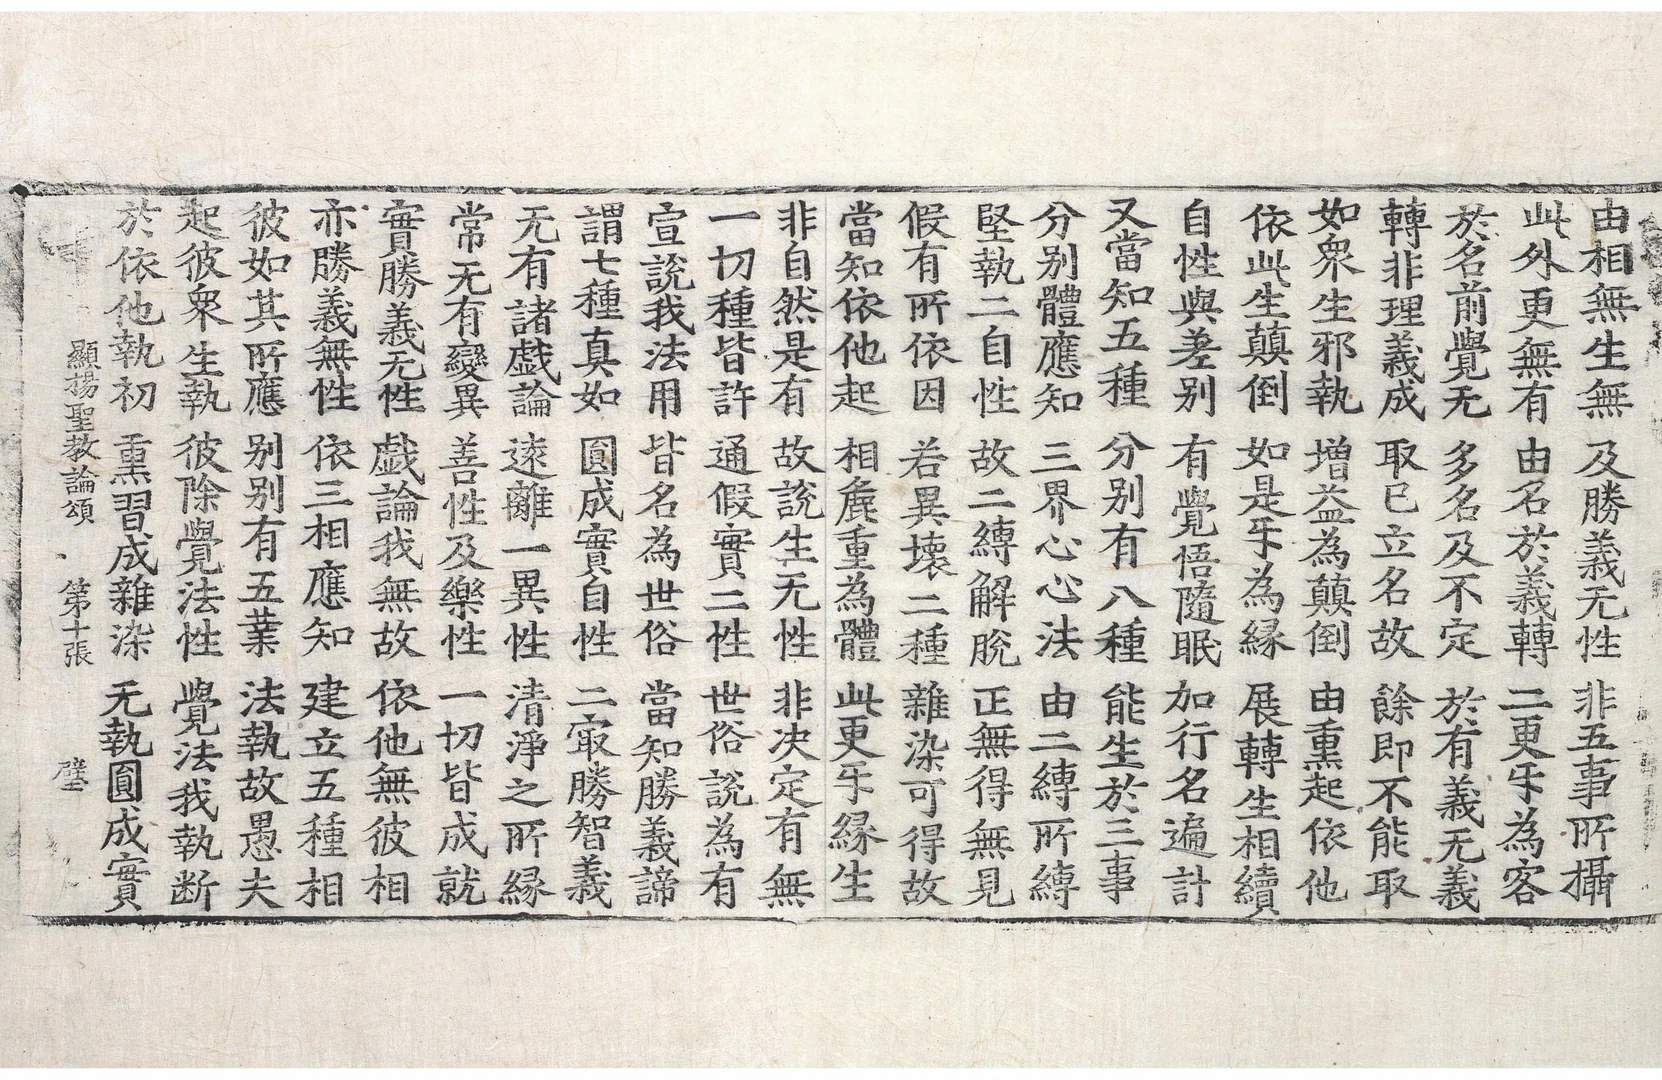 由相無生無 及勝義无性 非五事所攝
此外更無有 由名於義轉 二更㸦為客
於名前覺无 多名及不定 於有義无義
轉非理義成 取已立名故 餘即不能取
如衆生邪執 增益為顛倒 由熏起依他
依此生顛倒 如是㸦為緣 展轉生相續
自性與差别 有覺悟隨眠 加行名遍計
又當知五種 分别有八種 能生於三事
分别體應知 三界心心法 由二縛所縛
堅執二自性 故二縛解脫 正無得無見
假有所依因 若異壞二種 雜染可得故
當知依他起 相麁重為體 此更㸦緣生
非自然是有 故說生无性 非決定有無
一切種皆許 通假實二性 世俗說為有
宣說我法用 皆名為世俗 當知勝義諦
謂七種真如 圓成實自性 二㝡勝智義
无有諸戲論 遠離一異性 清淨之所緣
常无有變異 善性及樂性 一切皆成就
實勝義无性 戲論我無故 依他無彼相
亦勝義無性 依三相應知 建立五種相
彼如其所應 别别有五業 法執故愚夫
起彼衆生執 彼除覺法性 覺法我執断
於依他執初 熏習成雜染 无執圓成實
顯揚聖教論頌 第十張 壁